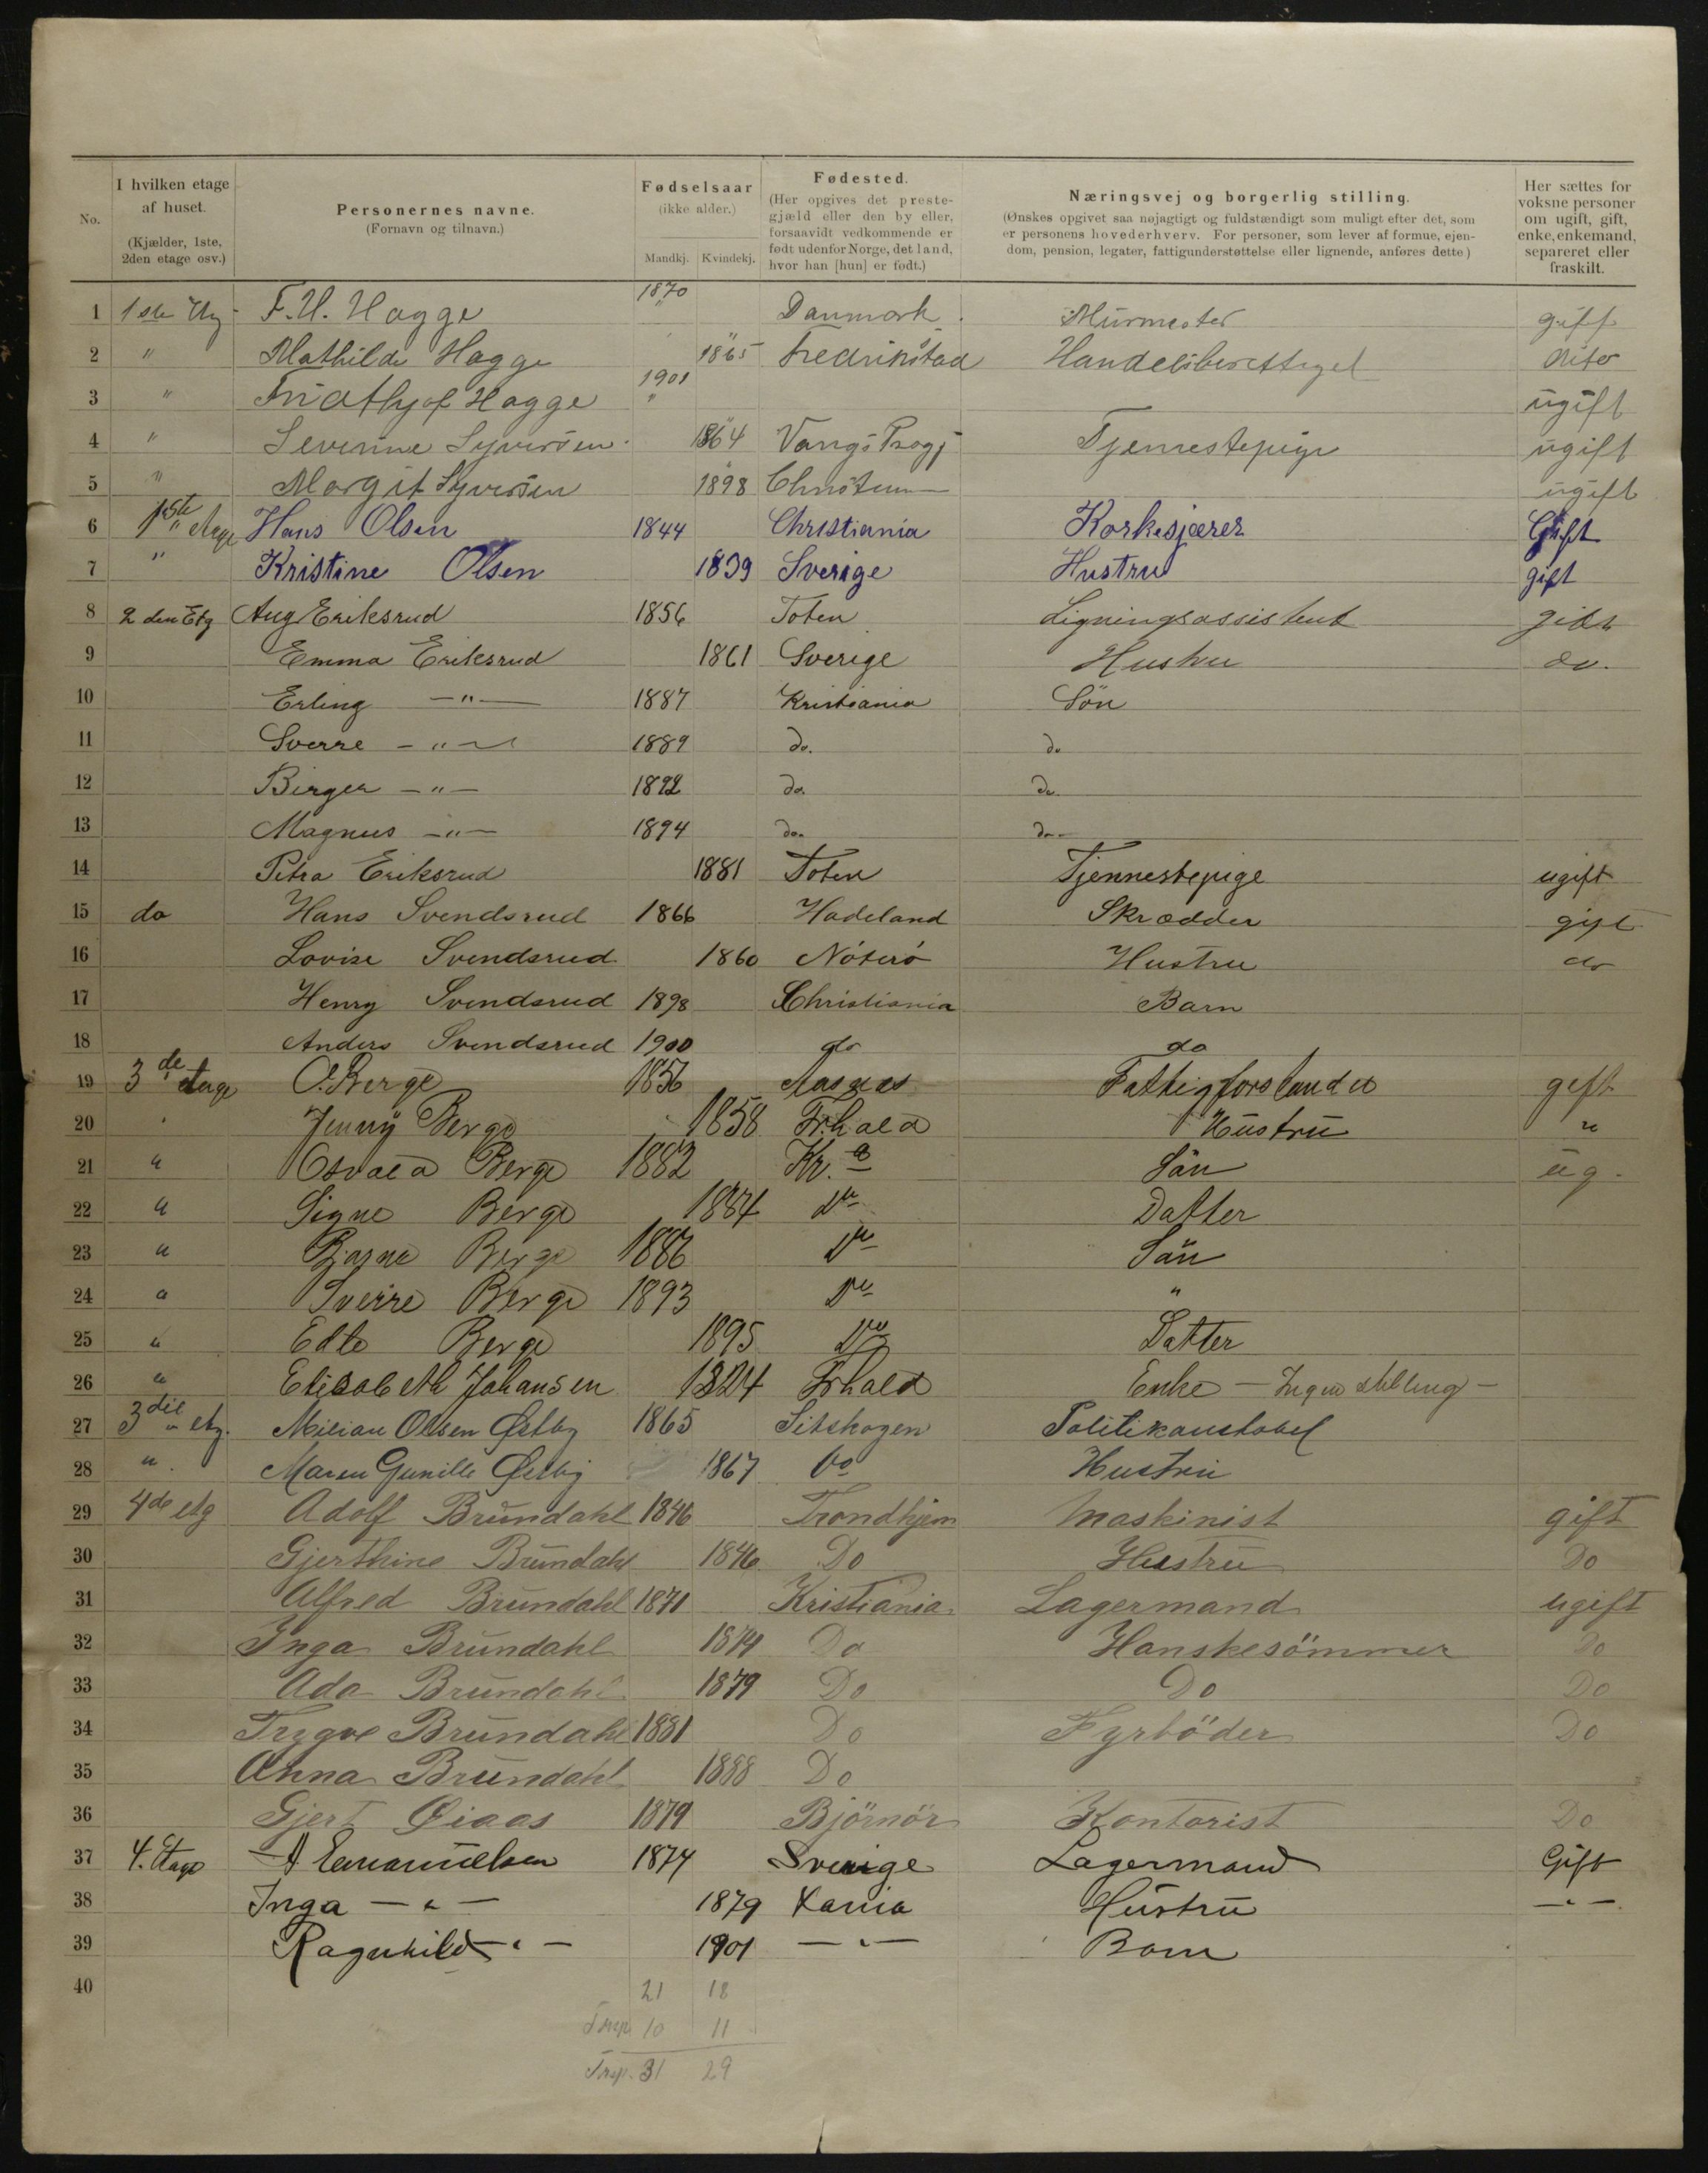 No.
I hvilken etage af huset.
(Kjælder, 1ste, 2den etage osv.)
Personernes navne.
(Fornavn og tilnavn.)
Fødselsaar
(ikke alder.)
Mandkj. Kvindekj.
Fødested.
(Her opgives det prestegjæld eller den by eller, forsaavidt vedkommende er født udenfor Norge, det land, hvor han [hun] er født.)
Næringsvej og borgerlig stilling.
(Ønskes opgivet saa nøjagtigt og fuldstændigt som muligt efter det, som er personens hovederhverv. For personer, som lever af formue, ejendom, pension, legater, fattigunderstøttelse eller lignende, anføres dette)
Her sættes for voksne personer om ugift, gift, enke, enkemand, separeret eller fraskilt.
1 1ste Etg F. H. Hagge 1870 Danmark Murmester gift
2 " Mathilde Hagge 1865 Fredrikstad Handelsberettiget dito
3 " Fridthjof Hagge 1901 ugift
4 " Severine Syversen 1864 Vangs Prsgj Tjenestepige ugift
5 " Margit Syversen 1898 ugift
6 1ste Etage Hans Olsen 1844 Christiania Korkesjærer Gift
7 " Kristine Olsen 1839 Sverige Hustru gift
8 2den Etg Aug Eriksrud 1856 Toten Ligningsassistent gift
9 Emma Eriksrud 1861 Sverige Hustru do.
10 Erling —"— 1887 Kristiania Søn
11 Sverre —"— 1889 do. do
12 Birger —"— 1892 do. do.
13 Magnus —"— 1894 do. do—
14 Petra Eriksrud 1881 Toten Tjennestepige ugift
15 do Hans Svendsrud 1866 Hadeland Skrædder gift
16 Lovise Svendsrud 1860 Nøterø Hustru do
17 Henry Svendsrud 1898 Christiania Barn
18 Anders Svendsrud 1900 do do
19 3de etage O. Berge 1856 Aasnes Fattigforstander gift
20 " Jenny Berge 1858 Frhald Hustru "
21 " Osvald Berge 1882 Kr.a Sön ug.
22 " Signe Berge 1884 Do Datter
23 " Bjarne Berge 1886 Do Sön
24 " Sverre Berge 1893 Do "
25 " Edle Berge 1895 Do Datter
26 " Elisabeth Johansen 1824 Frhald Enke — Ingen stilling —
27 3die etg. Milian Olsen Østby 1865 Sitskogen Politikonstabel
28 " Maren Gunille Østby 1867 Do Hustru
29 4de etg Adolf Brundahl 1846 Trondhjem Maskinist gift
30 Gjerthine Brundahl 1846 Do Hustru Do
31 Alfred Brundahl 1871 Kristiania Lagermand ugift
32 Inga Brundahl 1874 Do Hanskesömmer Do
33 Ada Brundahl 1879 Do Do Do
34 Trygve Brundahl 1881 Do Fyrböder Do
35 Anna Brundahl 1888 Do
36 Gjert Øiaas 1879 Björnör Kontorist Do
37 4. Etage A Emanuelsen 1874 Sverige Lagermand Gift
38 Inga —"— 1879 Kania Hustru —"—
39 Ragnhild —"— 1901 —"— Barn
40 21 18
Trsp. 10 11
Trsp. 31 29